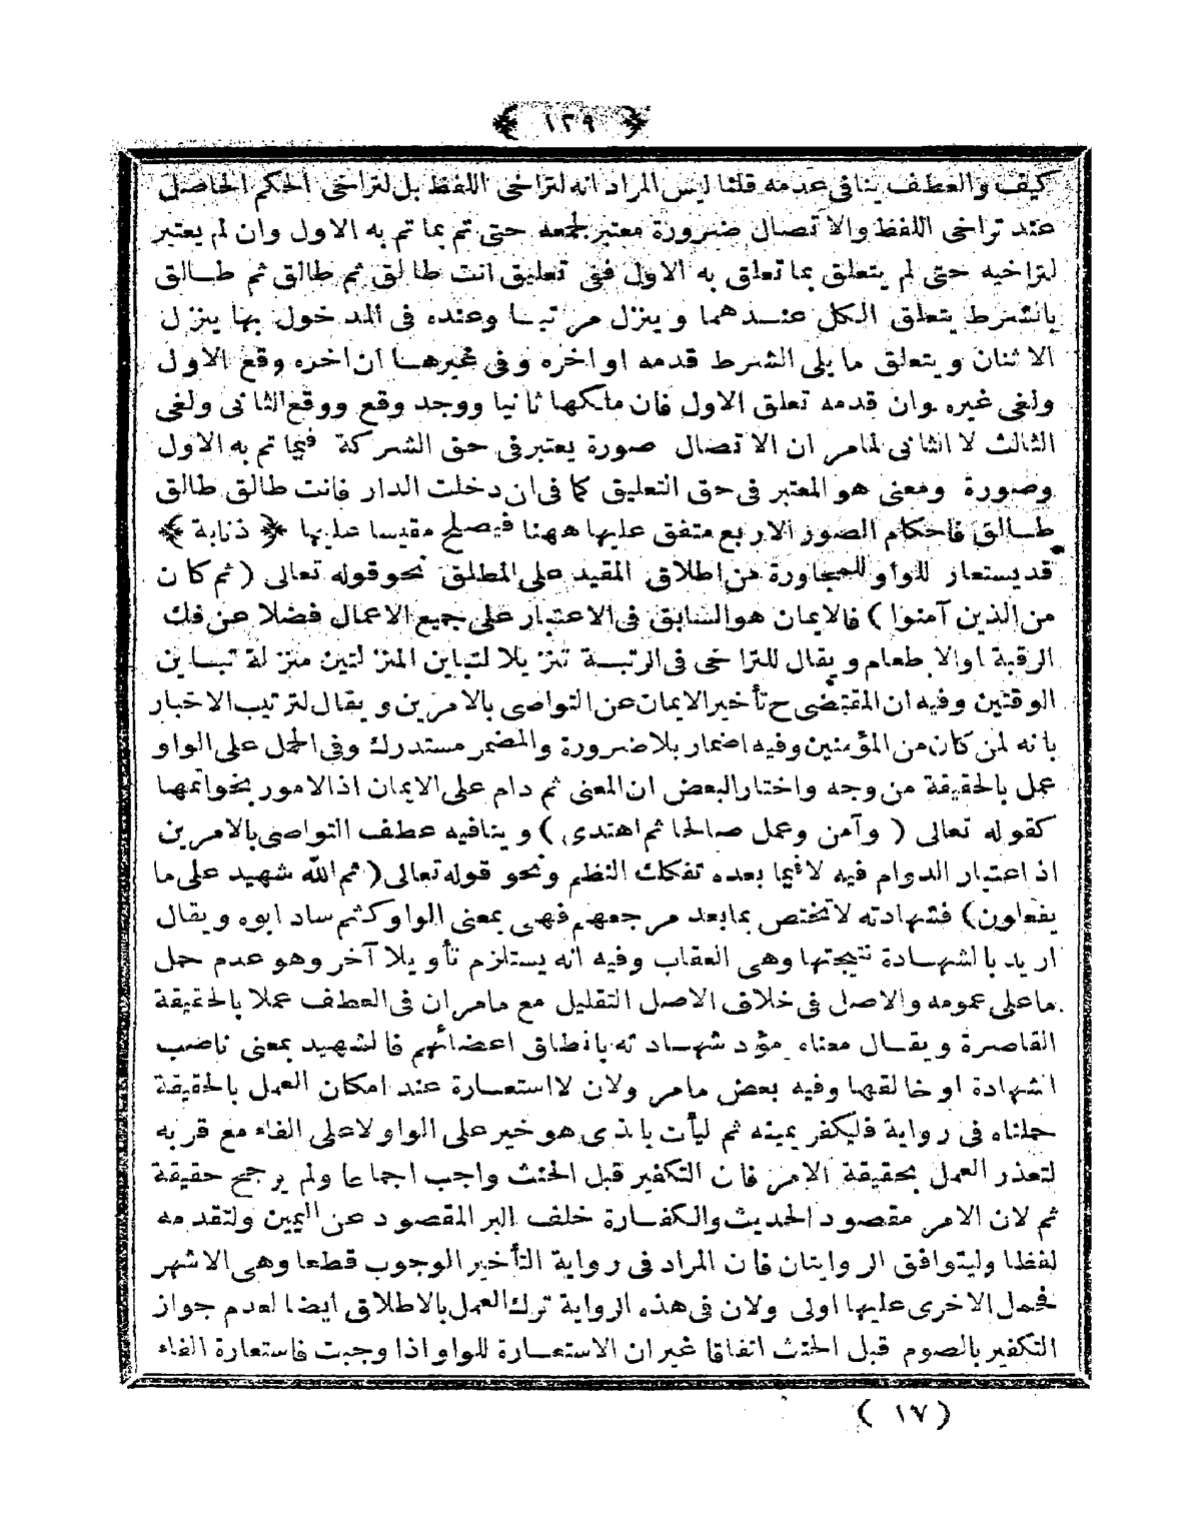 ﴿ ١٢٩ ﴾
كيف والعطف ينافى عدمه قلنا ليس المراد انه لتراخى اللفظ بل لتراخى الحكم الحاصل
عند تراخى اللفظ والاتصال ضرورة معتبر لجمعه حتى تم بما تم به الاول وان لم يعتبر
لتراخيه حتى لم يتعلق بما تعلق به الاول ففى تعليق انت طالق ثم طالق ثم طالق
بالشرط يتعلق الكل عندهما وينزل مرتبا وعنده فى المدخول بها ينزل
الاثنان ويتعلق مايلى الشرط قدمه او اخره وفى غيرها ان اخره وقع الاول
ولغى غيره وان قدمه تعلق الاول فان ملكها ثانيا ووجد وقع ووقع الثانى ولغى
الثالث لا الثانى لمامر ان الاتصال صورة يعتبر فى حق الشركة فيما تم به الاول
وصورة ومعنى هو المعتبر فى حق التعليق كما فى ان دخلت الدار فانت طالق طالق
طالق فاحكام الصور الاربع متفق عليها ههنا فيصلح مقيسا عليها ﴿ ذنابة ﴾
قد يستعار للواو للمجاورة من اطلاق المقيد على المطلق نحو قوله تعالى ( ثم كان
من الذين آمنوا ) فالايمان هو السابق فى الاعتبار على جميع الاعمال فضلا عن فك
الرقبة او الاطعام ويقال للتراخى فى الرتبة تنزيلا لتباين المنزلتين منزلة تباين
الوقتين وفيه ان المقتضى ح تأخير الايمان عن التواصى بالامرين ويقال لترتيب الاخبار
بانه لمن كان من المؤمنين وفيه اضمار بلا ضرورة والمضمر مستدرك وفى الحمل على الواو
عمل بالحقيقة من وجه واختار البعض ان المعنى ثم دام على الايمان اذ الامور بخواتمها
كقوله تعالى ( وآمن وعمل صالحا ثم اهتدى ) وينافيه عطف التواصى بالامرين
اذ اعتبار الدوام فيه لا فيما بعده تفكك النظم ونحو قوله تعالى ( ثم الله شهيد على ما
يفعلون ) فشهادته لا تختص بمابعد مرجعهم فهى بمعنى الواو كثم ساد ابوه ويقال
اريد بالشهادة نتيجتها وهى العقاب وفيه انه يستلزم تأويلا آخر وهو عدم حمل
ما على عمومه والاصل فى خلاف الاصل التقليل مع مامر ان فى العطف عملا بالحقيقة
القاصرة ويقال معناه مؤد شهادته بانطاق اعضائهم فالشهيد بمعنى ناصب
الشهادة او خالقها وفيه بعض مامر ولان لا استعارة عند امكان العمل بالحقيقة
حملناه فى رواية فليكفر يمينه ثم ليأت بالذى هو خير على الواو لا على الفاء مع قربه
لتعذر العمل بحقيقة الامر فان التكفير قبل الحنث واجب اجماعا ولم يرجح حقيقة
ثم لان الامر مقصود الحديث والكفارة خلف البر المقصود عن اليمين ولتقدمه
لفظا وليتوافق الروايتان فان المراد فى رواية التأخير الوجوب قطعا وهى الاشهر
فحمل الاخرى عليها اولى ولان فى هذه الرواية ترك العمل بالاطلاق ايضا لعدم جواز
التكفير بالصوم قبل الحنث اتفاقا غير ان الاستعارة للواو اذا وجبت فاستعارة الفاء
( ١٧ )